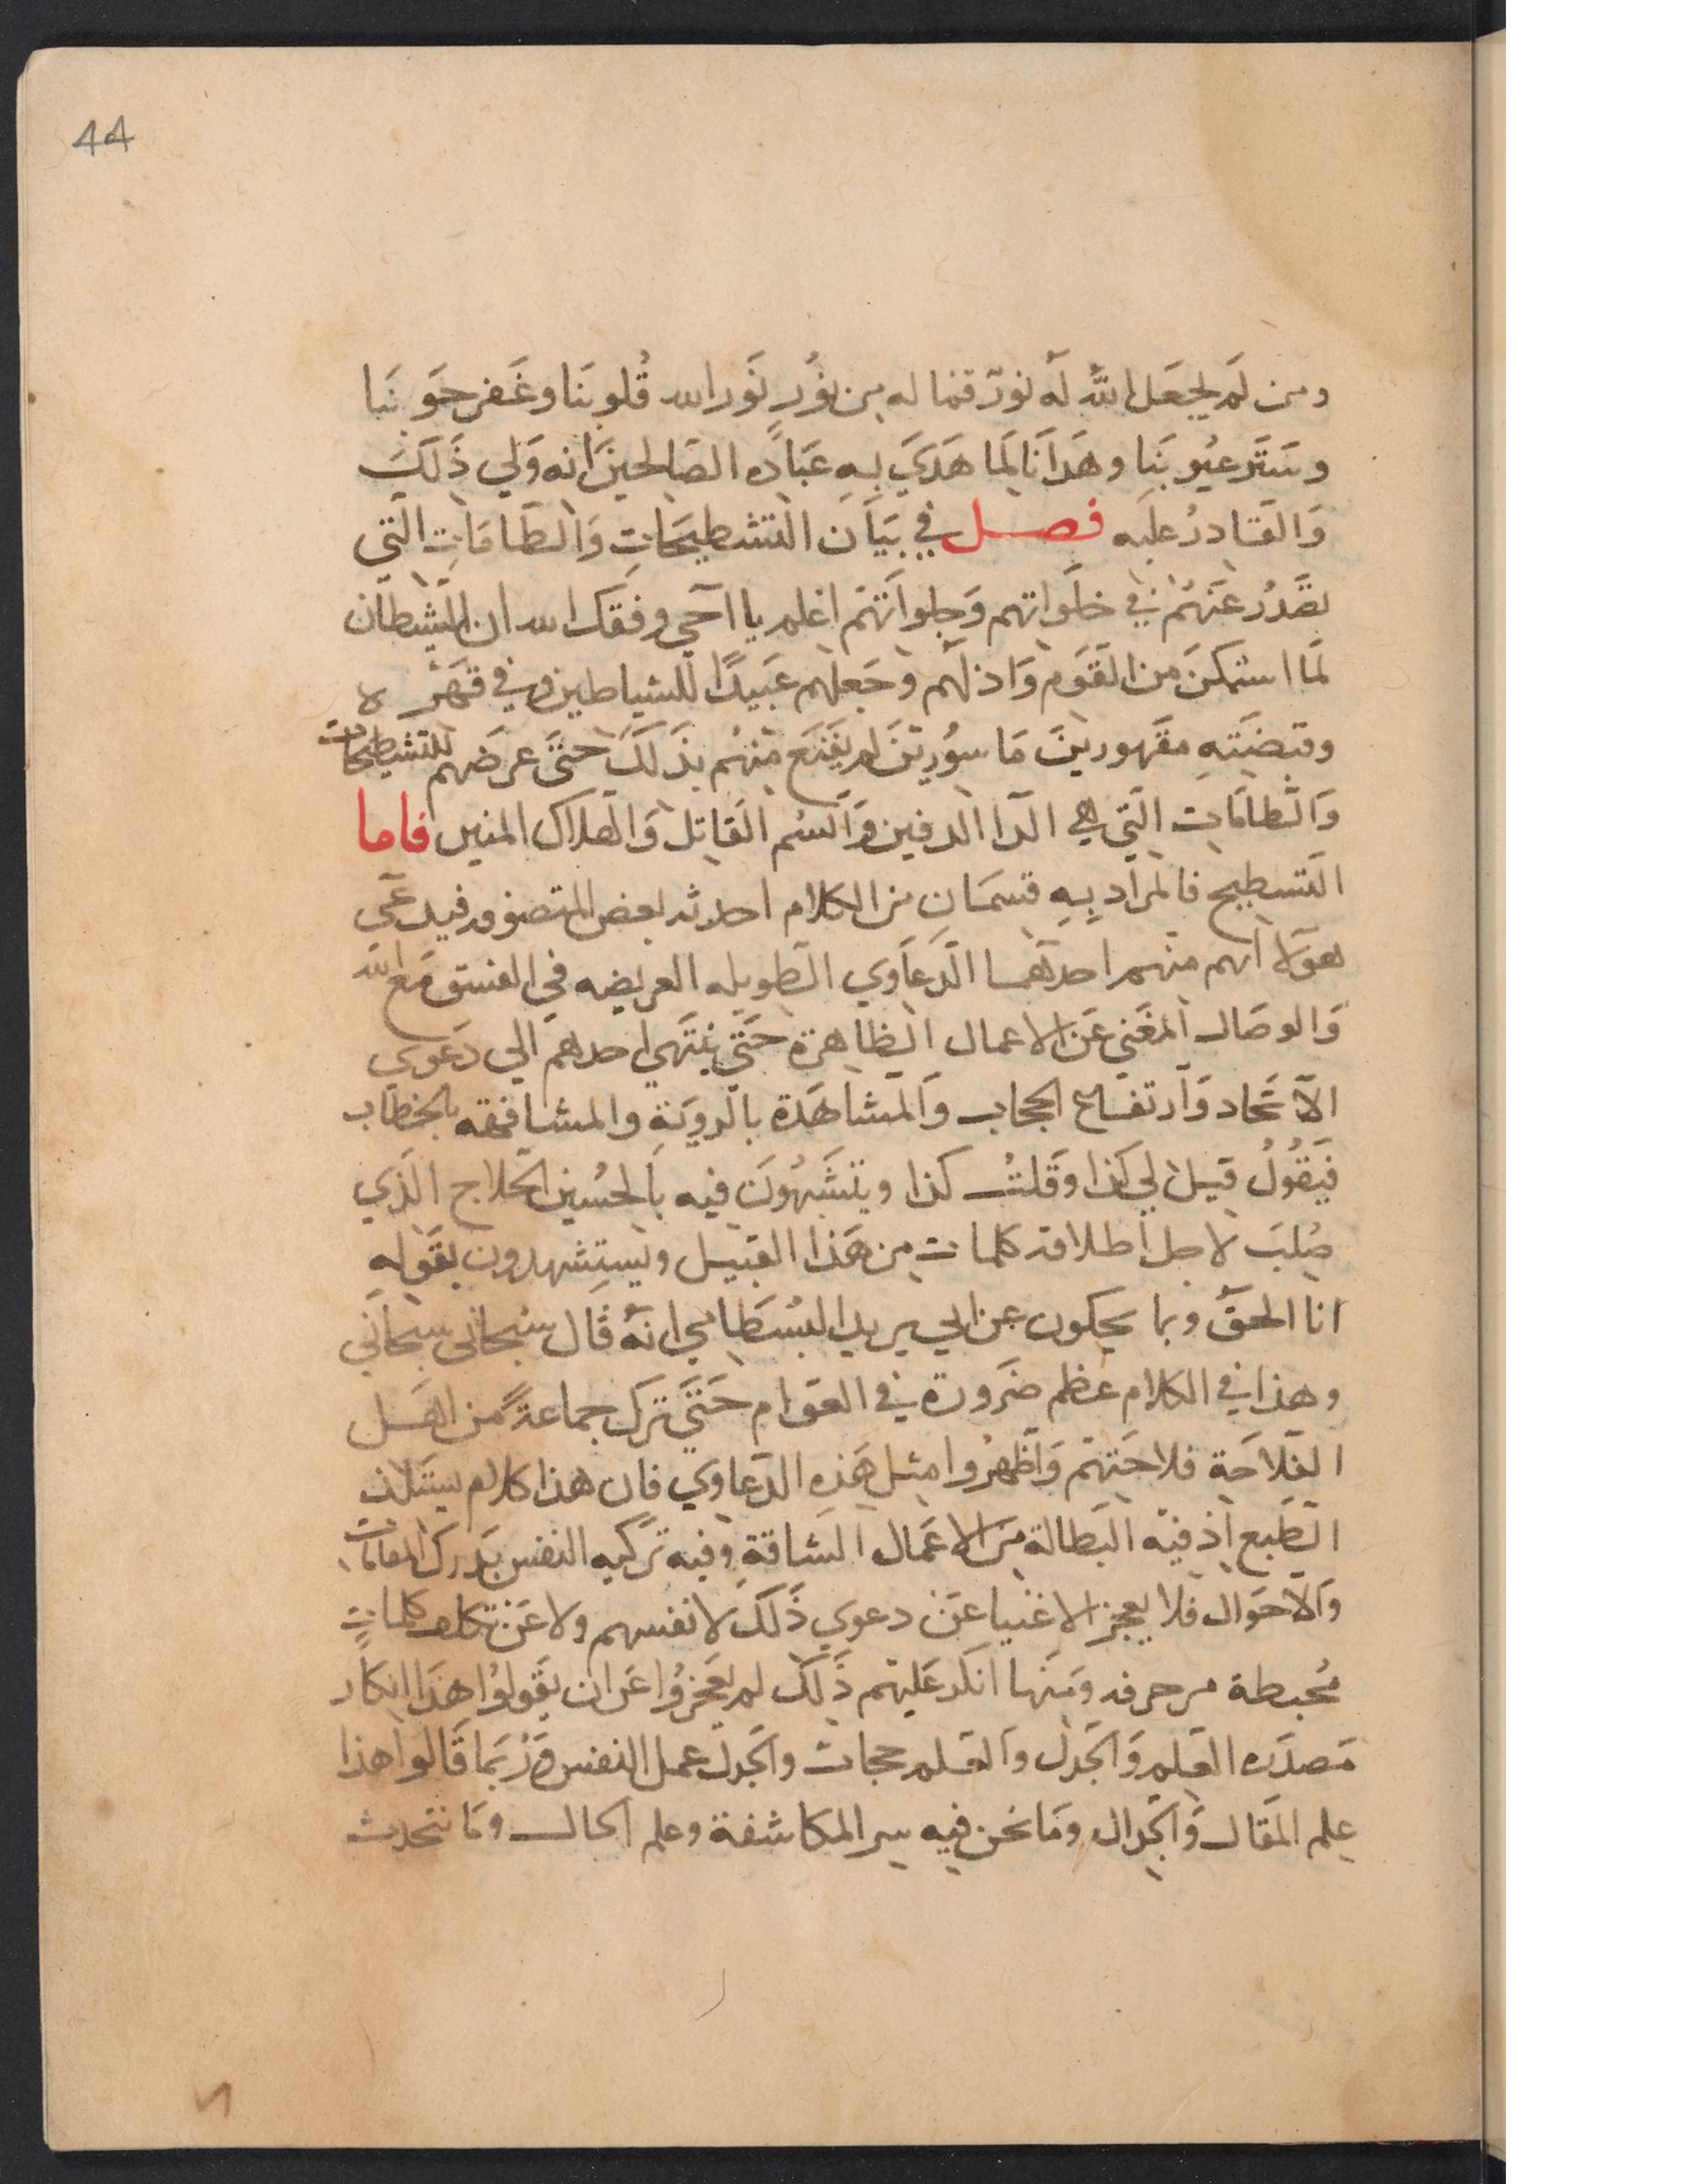 44
ومن لَم يجعَل اللهُ لَهُ نورٌ فما له مِن نُورٍ نَوَر الله قُلوبَنا وغَفر حَوبَنَا
وسَتَر عيُوبَنا وهَدَانَا لمَا هَدَي بِهِ عبَادَه الصَالحين انه وَلي ذَلَكَ
وَالقَادرُ علَيه فصل في بيَان التشطيحَاتِ وَالطَامَاتِ التي
تصَدُر عَنهُم في خلَواتهم وَجلواتهَم اعلم يا اخي وفقك الله ان الشيطان
لَمَا استمكنَ من القَوم وَاذلَهم وجَعلهم عَبيدًا للشياطين وفي قهَره
وقبضَتهِ مقَهورينَ مَاسوُرينَ لم يقنَع منهُم بذَلَكَ حتىَ عرضَهم للتشطيحات
وَالطامَاتِ التي هي الدا الدفين وَالسُم القَاتل وَالهلاك المنير فاما
التسطيح فالمرَاد بِهِ قسمَانِ من الكلام احدثه بعض المتصوفه فيدعَي
هولا انهم منهم احدهما الدعَاوي الطويله العريضه في العشق مَع الله
وَالوصَال المغَني عَن الاعمال الظاهرة حَتي ينتَهي احدهم الي دَعوي
الاتحَاد وَارتفاع الحجاب وَالمشاهَدة بالرويَةِ والمشافهه بالخطاب
فيَقُولُ قيل لي كذا وقَلتُ كذا ويتشَبهُونَ فيه بالحسُين الحلاج الذَي
صُلبَ لاجل اطلاقه كلمات مِن هَذا القبيل ويستشهدون بقَولِهِ
انا الحقُ وبما يحكون عن ابي يريد البُسَطامي انهُ قَال سُبحاني سبحَاني
وهذا في الكلام عظم ضَرورة في العوَام حَتَي ترك جماعةً من اهَل
الفلاحَة فلاحَتهَم وَاظَهرُوا مثل هَذِهِ الدعَاوي فان هذا كلام يستَلذ
الطَبع اذ فيه البَطالة مِنَ الاعمَال الشاقةِ وفيه تزكيه النفس بَدرَك المقامَات
وَالاحَوال فلا يعجز الاغنيا عَن دعوي ذَلَكَ لانفسهم ولا عَن تكلف كلماتٍ
مُخبطة مرحرفه ومَهَما انكر عَليَهم ذَلَك لم يعَجزُوا عَن ان يقَولوُا هذَا انكَار
مَصدَره العَلم وَالجدَل وَالعَلم حجاب وَالجدل عمل النفس وَرُبمَا قَالوا هذا
علم المقَال وَالجَدال ومَا نحَن فيِه سر المكاشفة وعلم الحال ومَا نتَحدث